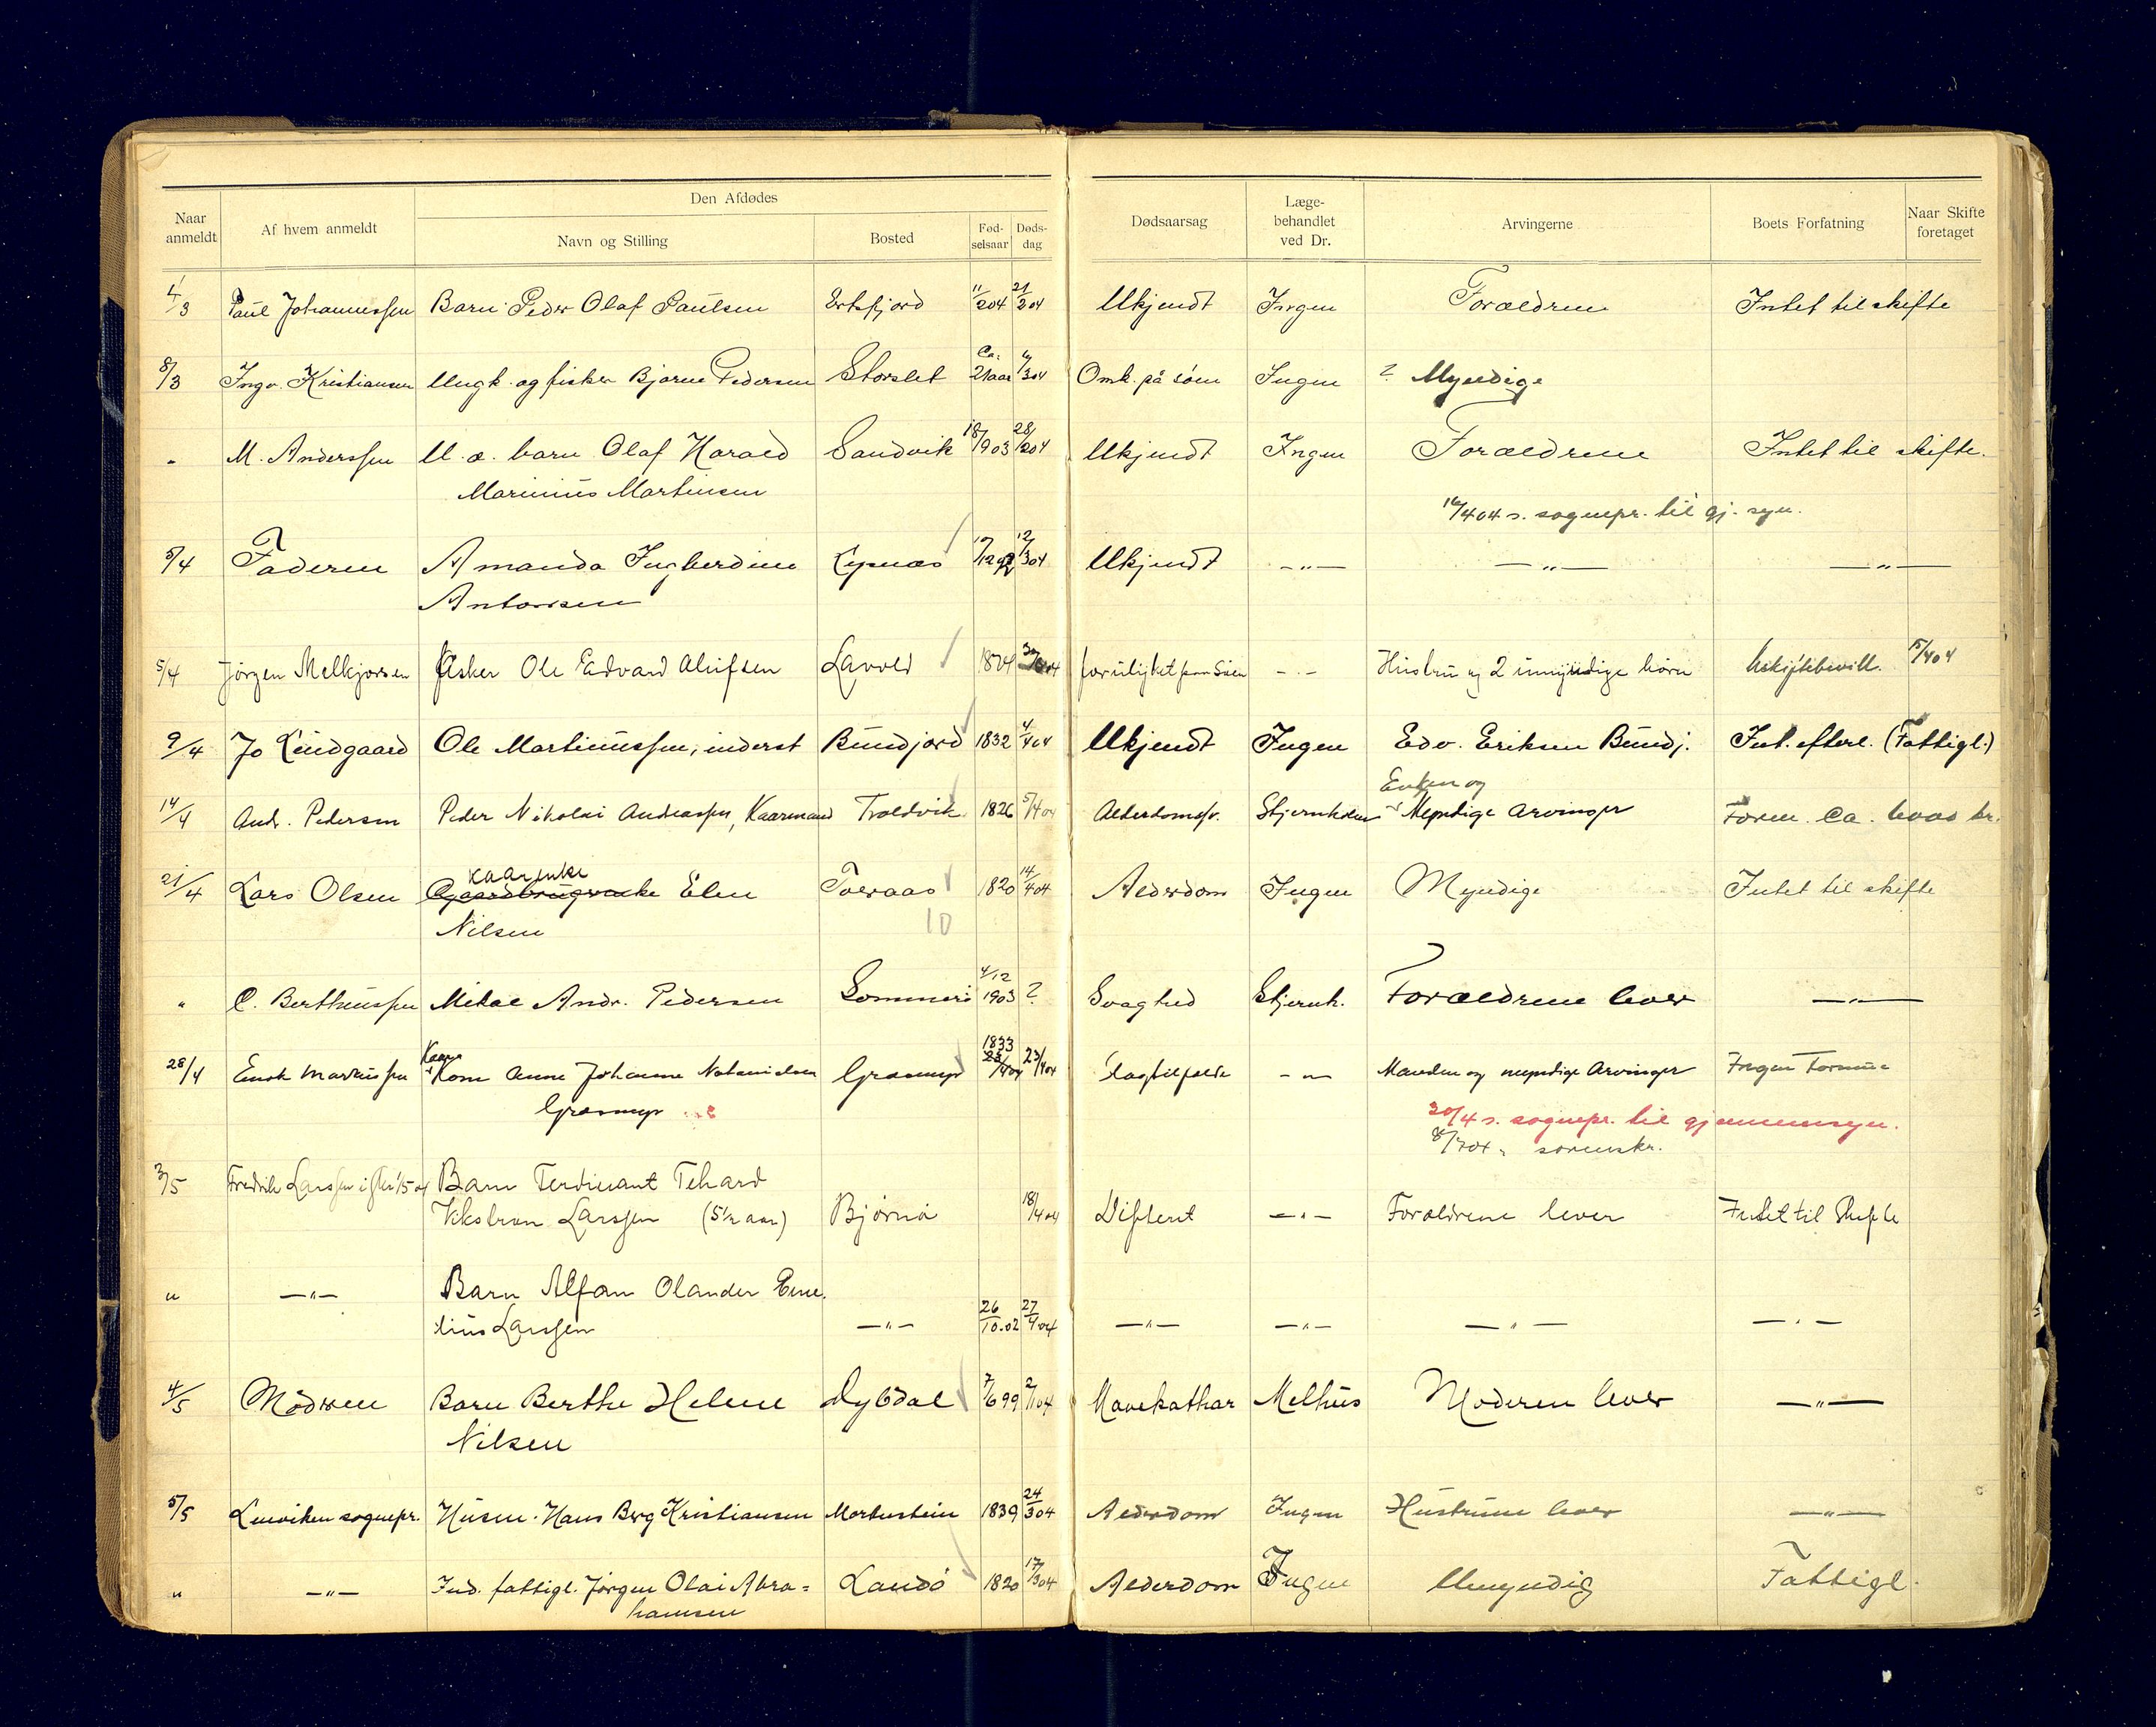 Den Afdødes
Naar anmeldt | Af hvem anmeldt | Navn og Stilling | Bosted | Fød-selsaar | Døds-dag | Dødsaarsag | Læge-behandlet ved Dr. | Arvingerne | Boets Forfatning | Naar Skifte foretaget
1/3 Paul Johannessen Barn Peder Olaf Paulsen Ersfjord 11/2 04 21/2 04 Ukjendt Ingen Forældrene Intet til skifte
8/3 Ingv. Kristiansen Ungk. og fisker Bjarne Pedersen Storslet Ca. 21 aar /3 04 Omk. på søen Ingen ? Myndige
" M. Anderssen U. æ. barn Olaf Harald Sandvik 18/ 903 28/2 04 Ukjendt Ingen Forældrene Intet til skifte.
Marinius Martinsen
16/4 04 s. sognepr. til gj. syn.
5/4 Faderen Amanda Ingberdine Lysnæs 12/3 04 Ukjendt —"— —"— —"—
Antonsen
5/4 Jørgen Melkjorsen fisker Ole Edvard Alufsen Lavold 1874 forulyket paa Søen -"- Hustru og 2 umyndige børn Uskiftebevill. 5/4 04
9/4 Jo Lindgaard Ole Martinussen, inderst Bundjord 1832 4/4 04 Ukjendt Ingen Edv. Eriksen Bundj. Int. efterl. (Fattigl.)
Enken og
14/4 Andr. Pedersen Peder Nikolai Andreassen, Kaarmand Troldvik 1826 5/4 04 Alderdomsv. Stjernholm Myndige Arvinger Form. Ca. kr.
Kaarenke
21/4 Lars Olsen Gaardbrugerenke Elen Toeraas 1820 14/4 04 Alderdom Ingen Myndige Intet til skifte
Nilsen 10
" C. Berthinssen Mikal Andr. Pedersen Sommerø 4/12 1903 ? Svaghed Stjernh. Forældrene lever —"—
28/4 Enok Markussen Kaar Kone Anne Johanne Natanielsen Græsmyr 1833 23/4 04 23/4 04 Slagtilfælde -"- Manden og myndige Arvinger Ingen Formue
Græsmyr
30/4 s. sognepr. til gjennemsyn.
8/7 04 " sorenskr.
3/5 Fredrik Larssen Barn Ferdinant Tehard
Vikstrøn Larssen (5½ aar) Bjørnø 18/4 04 Difterit -"- Forældrene lever Intet til Skifte
" —"— Barn Alfon Olander Eme-
lius Larssen —"— 26/10.02 27/4 04 —"— —"— —"— —"—
4/5 Moderen Barn Berthe Helene Dybdal 7/6 99 2/1 04 Mavekathar Melhus Moderen lever —"—
Nilsen
5/5 Lenviken sognepr. Husm. Hans Berg Kristiansen Mortenstein 1839 24/3 04 Alderdom Ingen Hustruen lever —"—
" —"— Ind. fattigl. Jørgen Olai Abra= Landø 1820 17/3 04 Alderdom Ingen Umyndig Fattigl.
hamsen